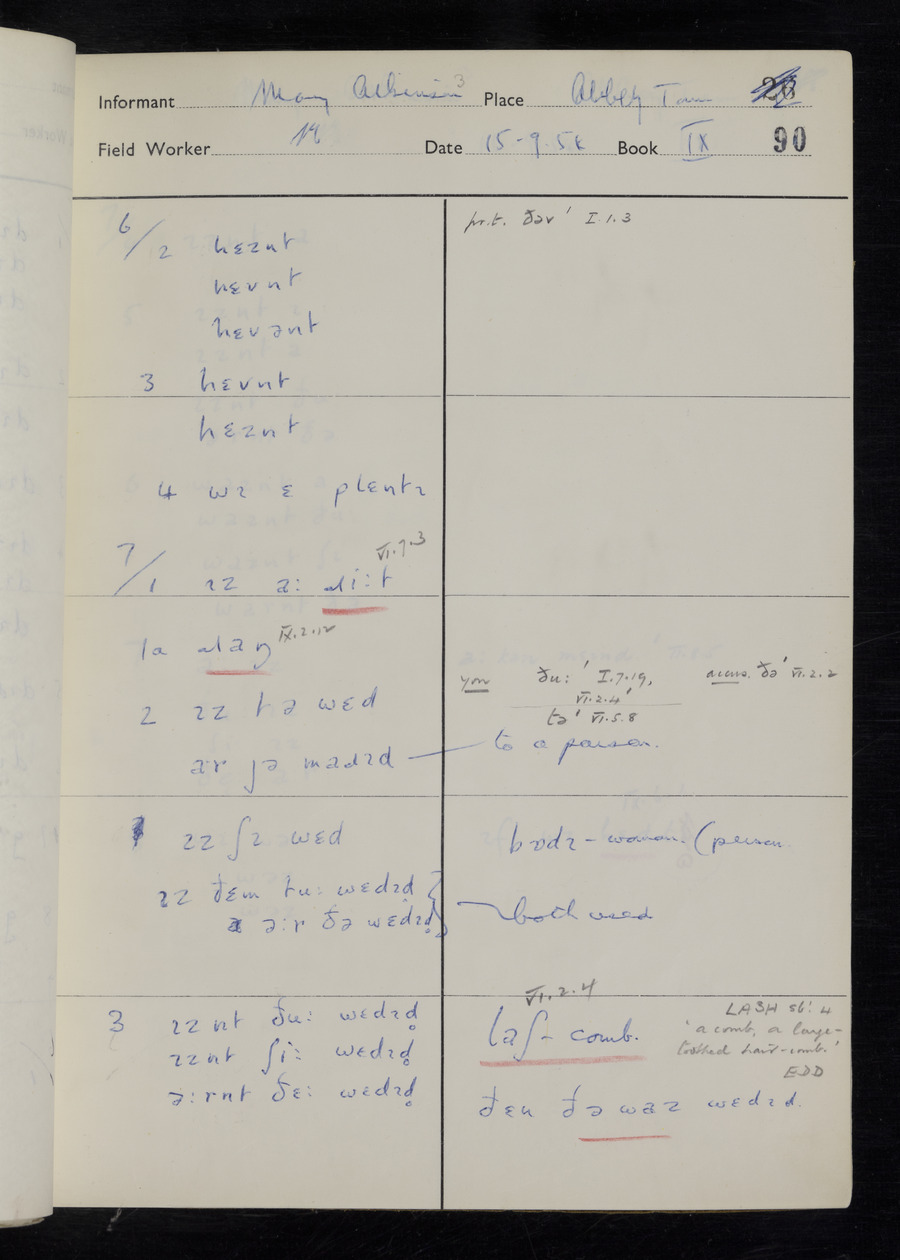 Informant Mary Atkinson 3 Place Abbey Town
Field Worker Date 15-9-54 Book IX 90
6/2 hɛznt
hɛvnt
hɛvənt
3 hɛvnt
hɛznt
4 wɪ ɛ plɛntɪ
7/1 ɪz VI.7.3
1a IX.2.12
2 ɪz tə wɛd
mæɹɪd — to a person.
ɪz ʃɪ wɛd
ɪz ðɛm tu: wɛdɪd
ə:r ðə wɛdɪd
3 ɪznt ðu: wɛdɪd
ɪznt ʃi: wɛdɪd
ə:rnt ðe: wɛdɪd
ðər' I.1.3
you ðu:' I.7.19, accus. ðə' VI.2.2
VI.2.4'
tə' VI.5.8
bɒdɪ - woman. (person
both used
VI.2.4
laʃ- comb.
LASH sb' 4
'a comb, a large-
toothed hair-comb.'
EDD
ðɛn ðə waz wɛdɪd.